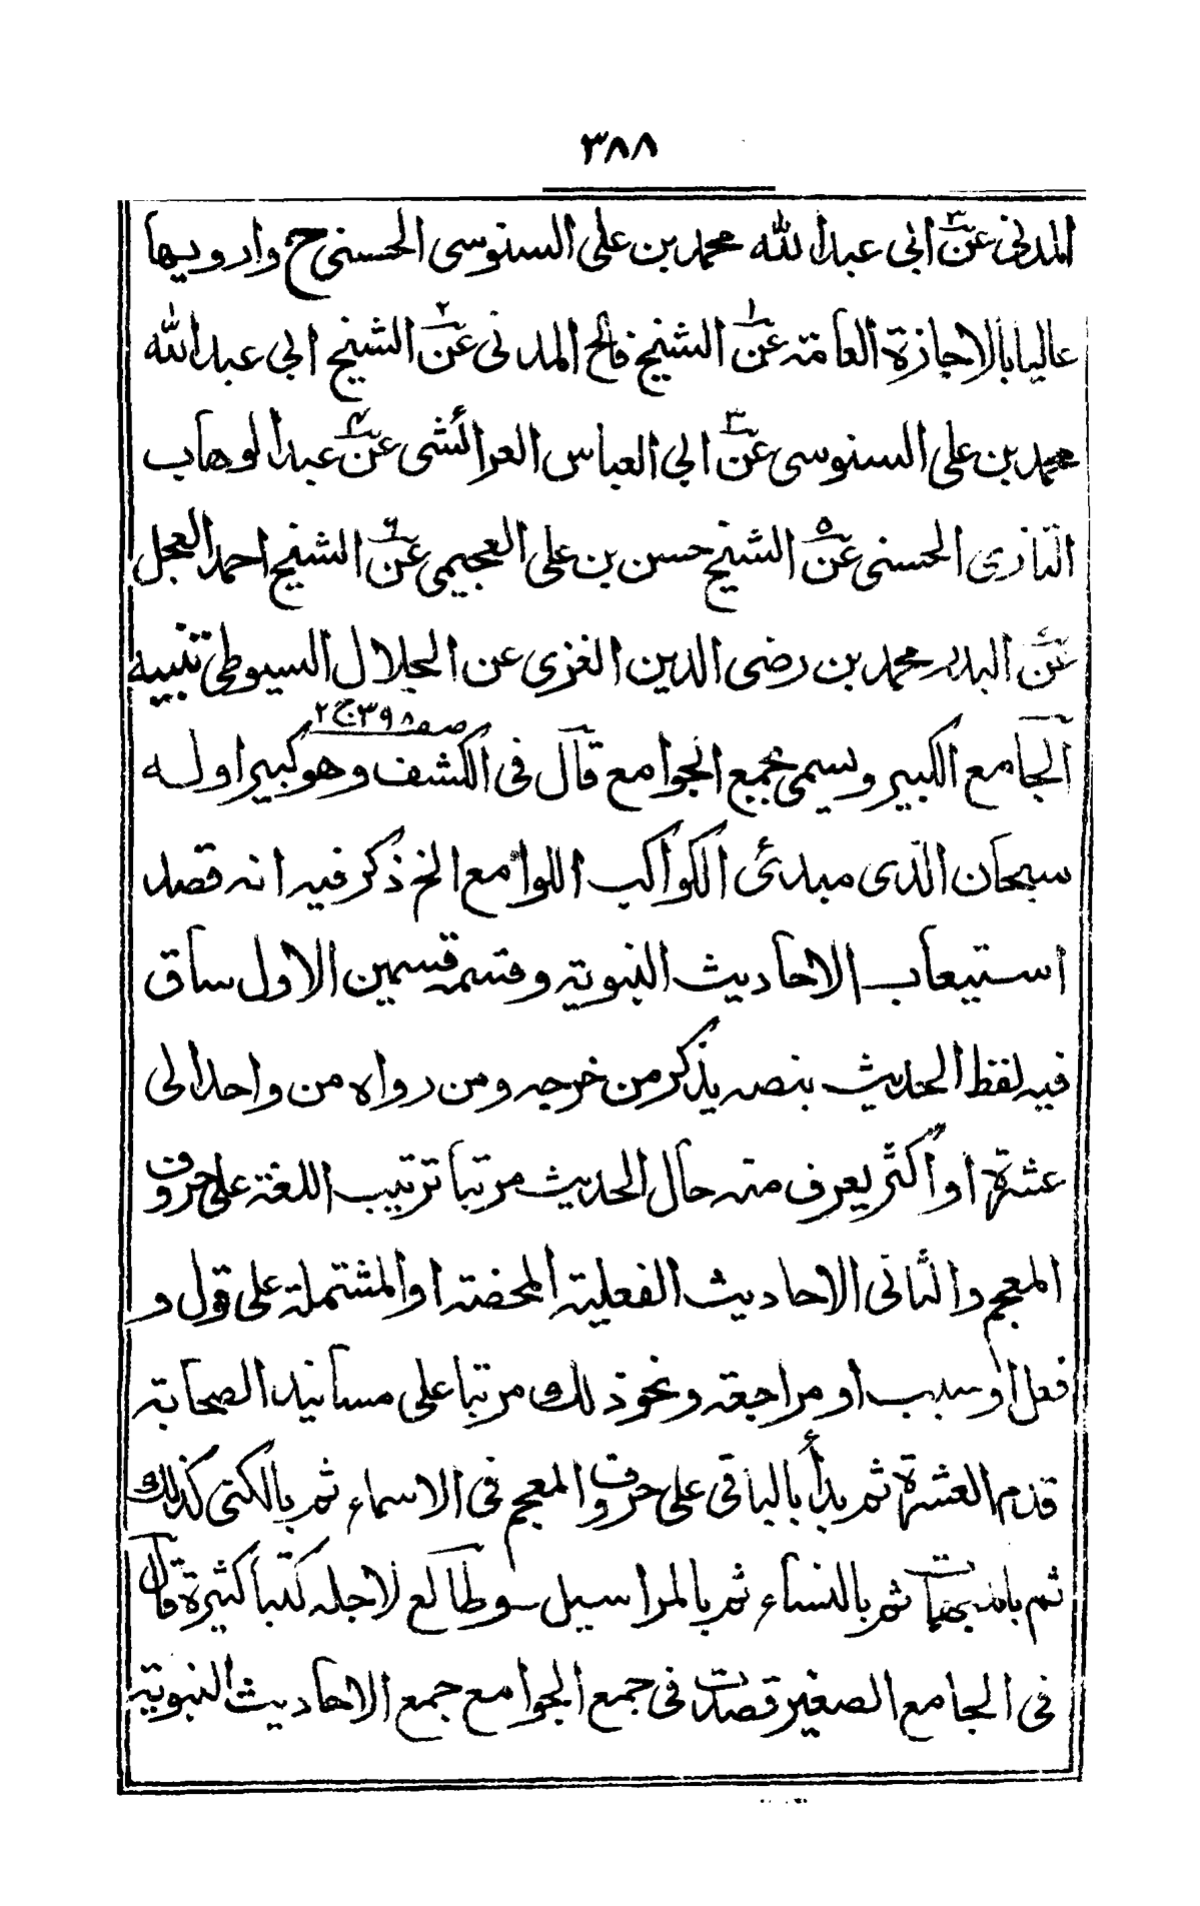 ٣٨٨
المدنى عن٣ ابى عبدالله محمد بن على السنوسى الحسنى ح وارويها
عاليا بالاجازة العامة عن١ الشيخ فالح المدنى عن٢ الشيخ ابى عبدالله
محمد بن على السنوسى عن٣ ابى العباس العرائشى عن٤ عبدالوهاب
التازى الحسنى عن٥ الشيخ حسن بن على العجيمى عن٦ الشيخ احمد العجل
عن البدر محمد بن رضى الدين الغزى عن الجلال السيوطى تنبيه
صـ٣٩٨ ج٢
الجامع الكبير ويسمى بجمع الجوامع قال فى الكشف وهو كبير اوله
سبحان الذى مبدئ الكواكب اللوامع الخ ذكر فيه انه قصد
استيعاب الاحاديث النبوية وقسمه قسمين الاول ساق
فيه لفظ الحديث بنصه يذكر من خرجه ومن رواه من واحد الى
عشرة او اكثر يعرف منه حال الحديث مرتبا ترتيب اللغة على حروف
المعجم والثانى الاحاديث الفعلية المحضة او المشتملة على قول و
فعل او سبب او مراجعة ونحو ذلك مرتبا على مسانيد الصحابة
قدم العشرة ثم بدأ بالباقى على حروف المعجم فى الاسماء ثم بالكنى كذلك
ثم بالمبهمات ثم بالنساء ثم بالمراسيل وطالع لاجله كتبا كثيرة قال
فى الجامع الصغير قصدت فى جمع الجوامع جمع الاحاديث النبوية